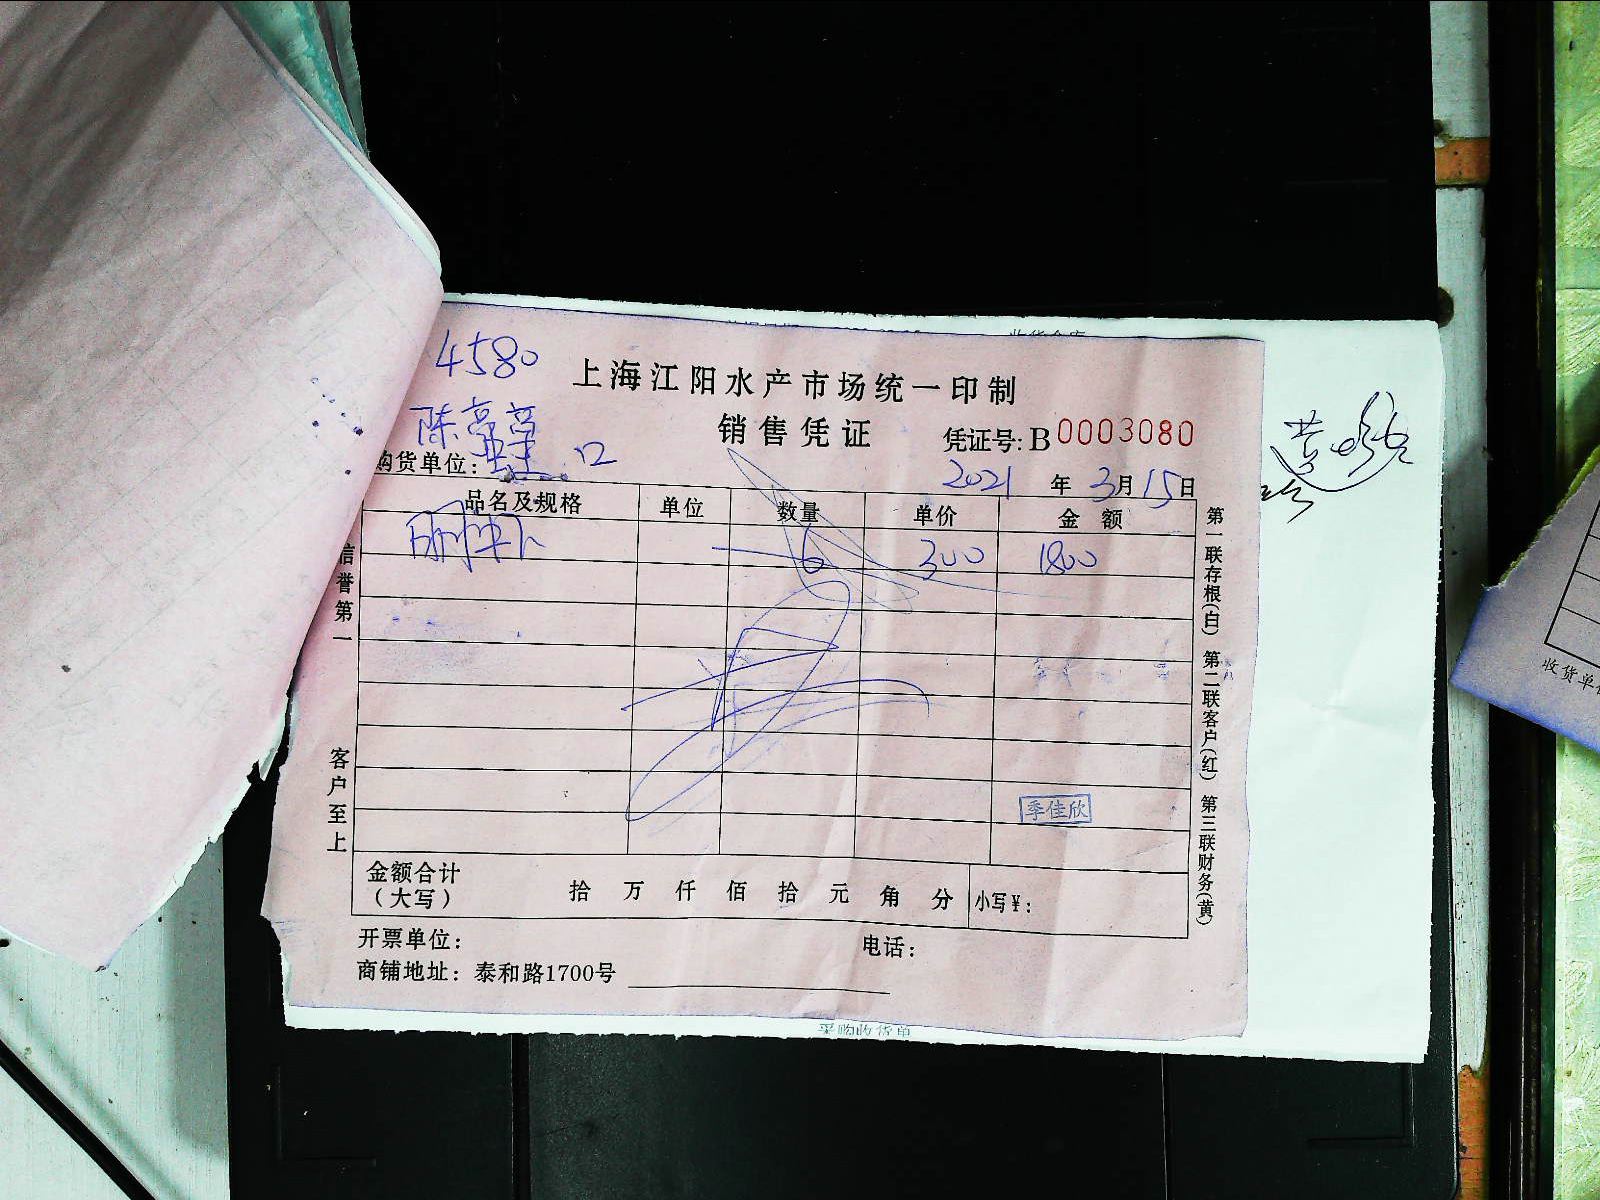 4580
上海江阳水产市场统一印制
陈亮亮
销售凭证
凭证号:B0003080
购货单位:
2021年3月15日
品名及规格 单位 数量 单价 金额
6 300 1800
信誉第一
客户至上
第一联存根(白) 第二联客户(红) 第三联财务(黄)
季佳欣
金额合计
(大写)
拾 万 仟 佰 拾 元 角 分 小写¥:
开票单位:
电话:
商铺地址:泰和路1700号
采购收货单
收货单